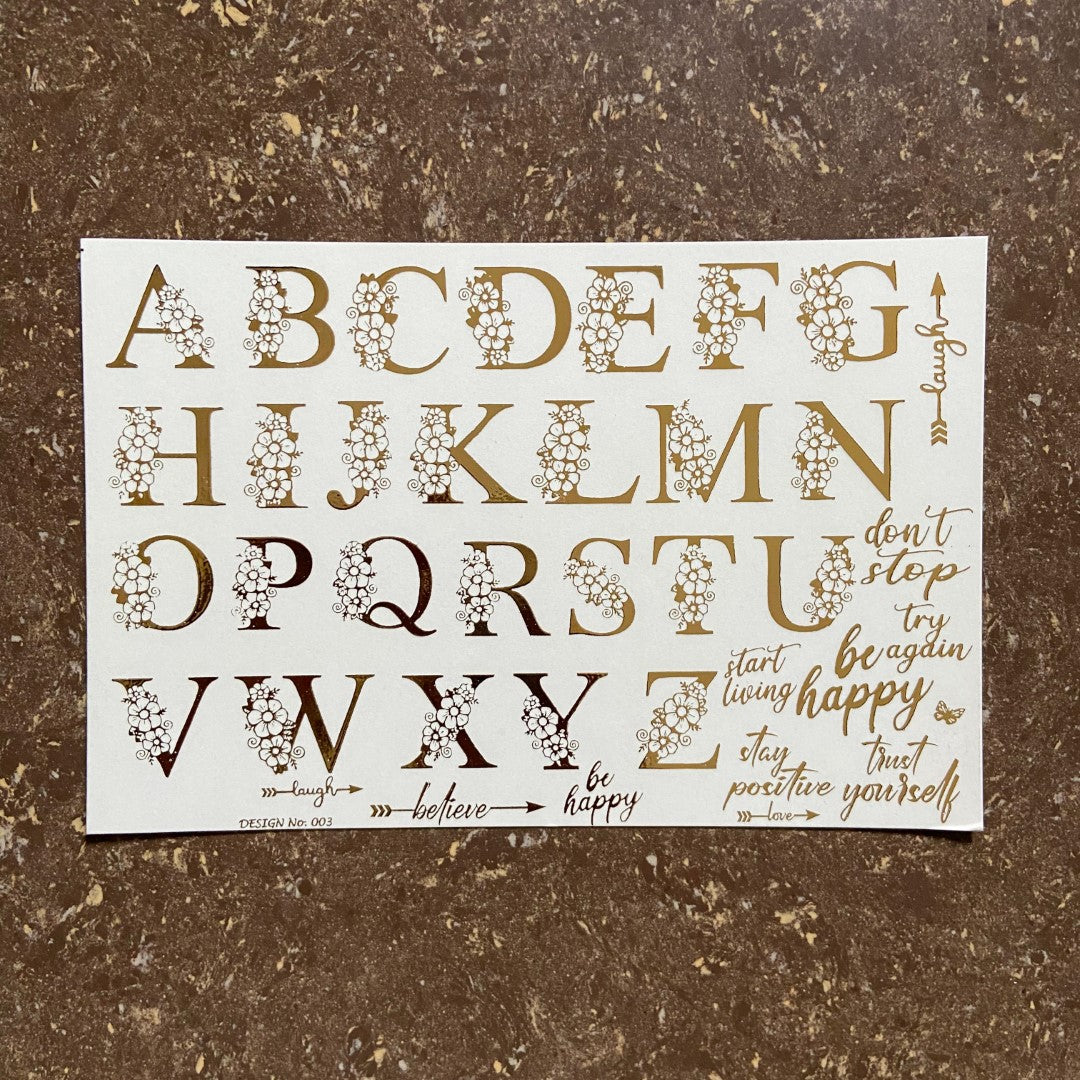 A B C D E F G
laugh
H I J K L M N
O P Q R S T U
don't
stop
try
again
be
happy
start
living
V W X Y Z
stay
positive
trust
yourself
laugh
believe
be
happy
love
DESIGN No: 003